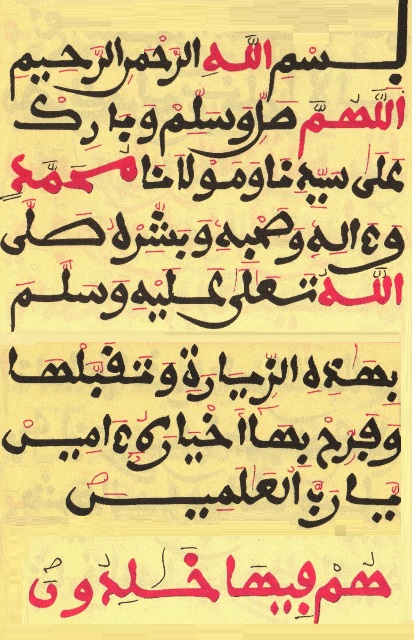 بِسْمِ اللَّهِ الرَّحْمَنِ الرَّحِيمِ
اللَّهُمَّ صَلِّ وَسَلِّمْ وَبَارِكْ
عَلَى سَيِّدِنَا وَمَوْلَانَا مُحَمَّدٍ
وَءَالِهِ وَصَحْبِهِ وَبَشِّرْهُ صَلَّى
اللَّهُ تَعَلَى عَلَيْهِ وَسَلَّمَ
بِهَذِهِ الزِّيَارَةِ وَتَقَبَّلْهَا
وَفَرِّحْ بِهَا أَخْيَارَهُ ءَامِينَ
يَا رَبَّ الْعَلَمِينَ
هُمْ فِيهَا خَلِدُونَ